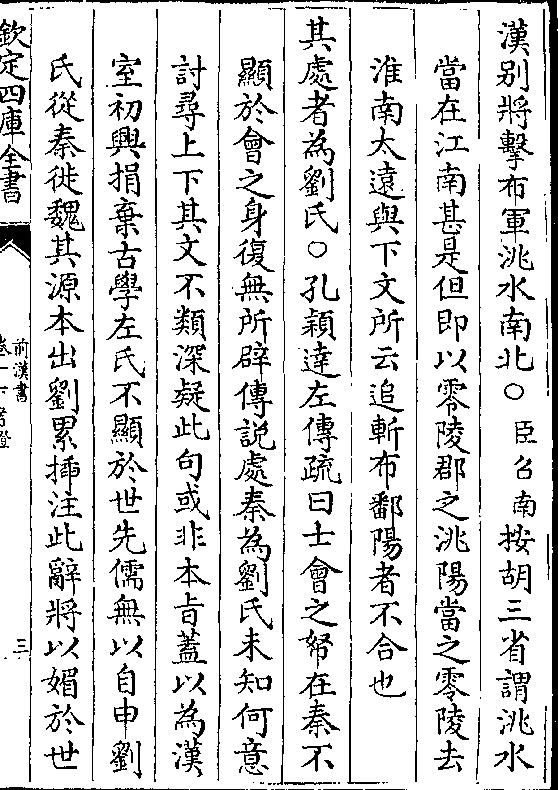 漢别將擊布軍洮水南北○臣召南按胡三省謂洮水
當在江南甚是但即以零陵郡之洮陽當之零陵去
淮南太遠與下文所云追斬布鄱陽者不合也
其處者為劉氏○孔穎達左傳疏曰士會之帑在秦不
顯於會之身復無所辟傳説處秦為劉氏未知何意
討尋上下其文不類深疑此句或非本旨蓋以為漢
室初興捐棄古學左氏不顯於世先儒無以自申劉
氏從秦徙魏其源本出劉累揷注此辭將以媚於世
欽定四庫全書
前漢書
三